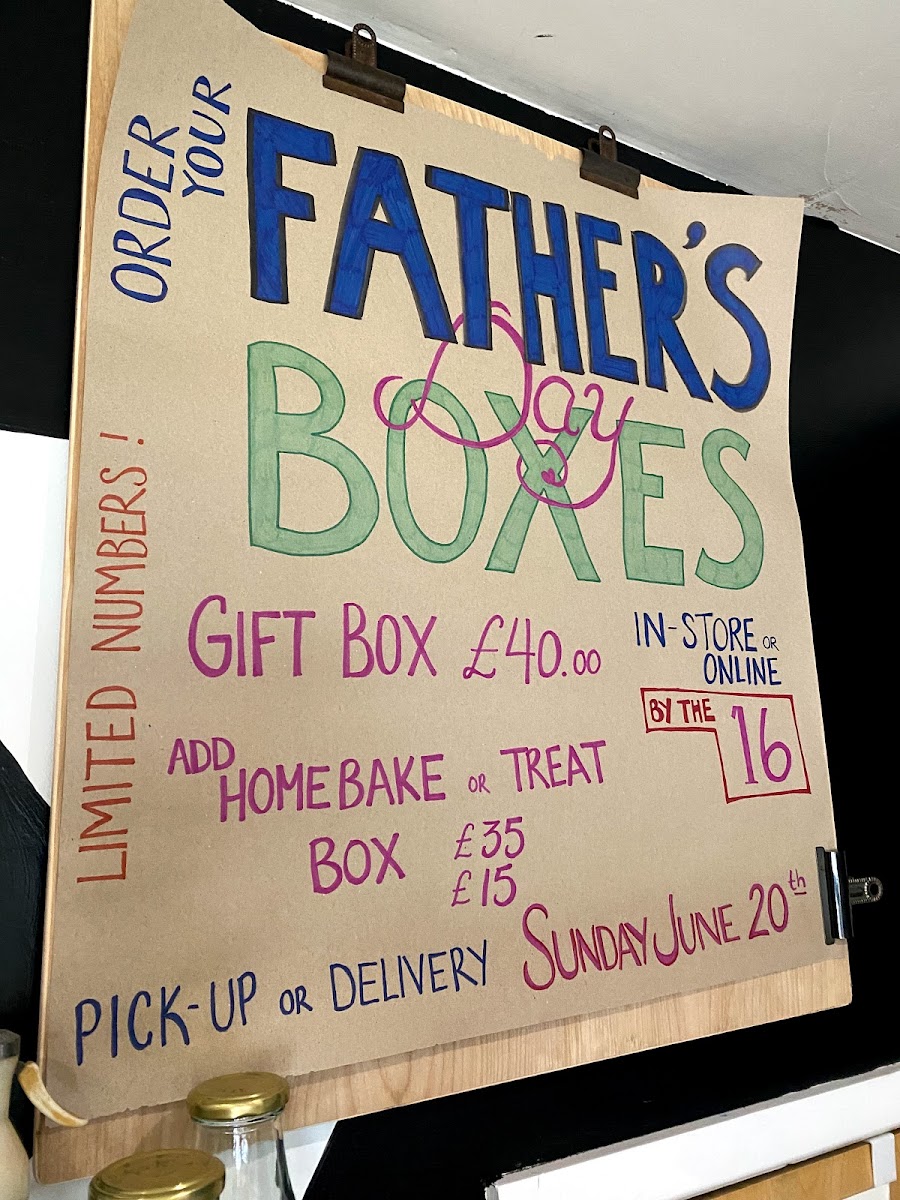 ORDER
YOUR
FATHER'S
Day
BOXES
LIMITED NUMBERS!
GIFT BOX £40.00
IN-STORE OR
ONLINE
BY THE
16
ADD
HOMEBAKE OR TREAT
BOX £35
£15
SUNDAY JUNE 20th
PICK-UP OR DELIVERY